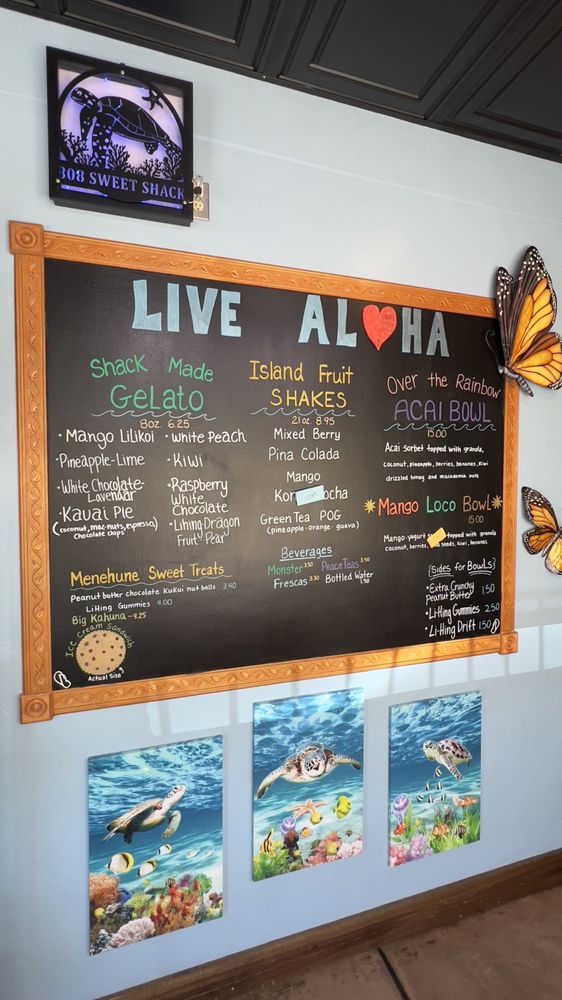 808 SWEET SHACK
LIVE ALOHA
Shack Made
GeLato
8oz. 6.25
· Mango Lilikoi
· Pineapple-Lime
· White Chocolate-
Lavendar
· Kavai Pie
(coconut, mac-nuts, espresso)
chocolate chips
· White Peach
· Kiwi
· Raspberry
White
Chocolate
· Lihing-Dragon
Fruit Pear
Island Fruit
SHAKES
21oz 8.95
Mixed Berry
Pina Colada
Mango
Green Tea POG
(pineapple·orange·guava)
Over the Rainbow
ACAI BOWL
15.00
Acai Sorbet topped with granola,
coconut, pineapple, berries, bananas, Kiwi
drizzled honey and macadamia nuts
Mango Loco Bowl
15.00
Mango-yogurt topped with granola
coconut, berries, seeds, Kiwi, bananas
Menehune Sweet Treats
Peanut butter chocolate KuKui nut balls 3.40
Li Hing Gummies 4.00
Big Kahuna - 4.25
Ice Cream Sandwich
Actual Size
Beverages
Monster 3.50 Peace Teas 3.50
Frescas 3.50 Bottled Water 1.50
(Sides for Bowls)
· Extra Crunchy
Peanut Butter 1.50
· Li-Hing Gummies 2.50
· Li-Hing Drift 1.50